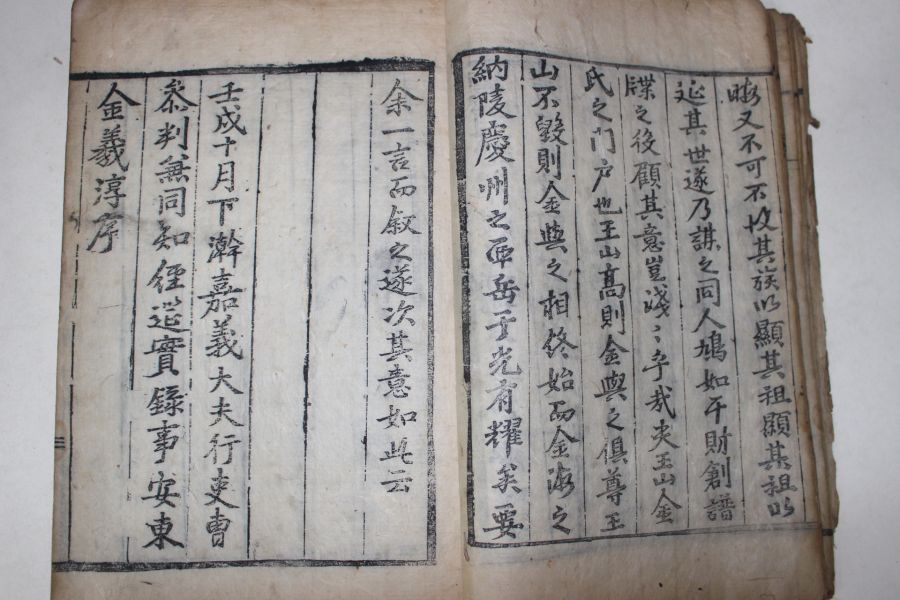 晦又不可不收其族以顯其祖顯其祖以
延其世遂乃謀之同人鳩如干財創譜
牒之後顧其意豈淺〻乎哉夫玉山金
氏之門户也玉山高則金與之俱尊玉
山不毀則金與之相終始而金海之
納陵慶州之西岳于光有耀矣要
余一言而叙之遂次其意如此云
壬戌十月下澣嘉義大夫行吏曹
叅判兼同知經筵實錄事安東
金羲淳序